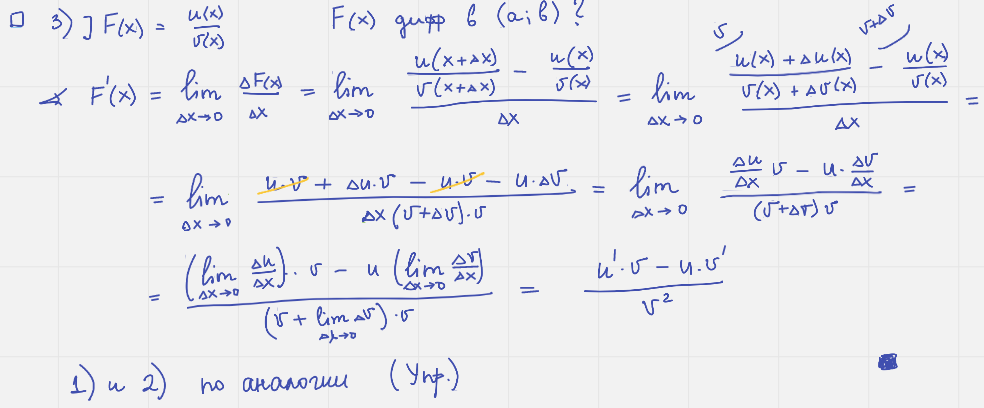 □ 3) ] F(x) = u(x)/v(x) F(x) дифф в (a; b)?
v v+Δv
∢ F'(x) = lim_{Δx→0} ΔF(x)/Δx = lim_{Δx→0} (u(x+Δx)/v(x+Δx) − u(x)/v(x))/Δx = lim_{Δx→0} ((u(x)+Δu(x))/(v(x)+Δv(x)) − u(x)/v(x))/Δx =
= lim_{Δx→0} (u·v + Δu·v − u·v − u·Δv)/(Δx(v+Δv)·v) = lim_{Δx→0} (Δu/Δx v − u·Δv/Δx)/((v+Δv)v) =
= ((lim_{Δx→0} Δu/Δx)·v − u(lim_{Δx→0} Δv/Δx))/((v + lim_{Δx→0} Δv)·v) = (u'·v − u·v')/v²
1) и 2) по аналогии (Упр.)